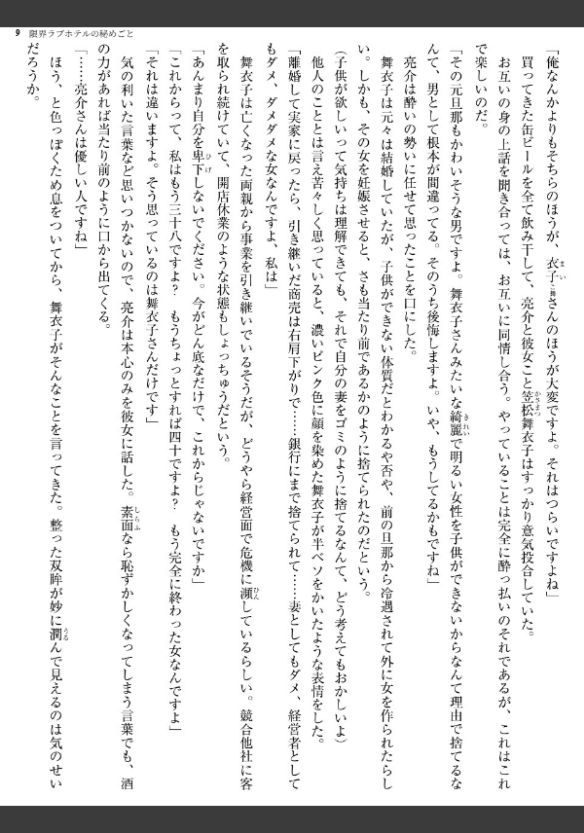 9 限界ラブホテルの秘めごと
「俺なんかよりもそちらのほうが、衣子さんのほうが大変ですよ。それはつらいですよね」
買ってきた缶ビールを全て飲み干して、亮介と彼女こと笠松舞衣子はすっかり意気投合していた。
お互いの身の上話を聞き合っては、お互いに同情し合う。やっていることは完全に酔っ払いのそれであるが、これはこれ
で楽しいのだ。
「その元旦那もかわいそうな男ですよ。舞衣子さんみたいな綺麗で明るい女性を子供ができないからなんて理由で捨てるな
んて、男として根本が間違ってる。そのうち後悔しますよ。いや、もうしてるかもですね」
亮介は酔いの勢いに任せて思ったことを口にした。
舞衣子は元々は結婚していたが、子供ができない体質だとわかるや否や、前の旦那から冷遇されて外に女を作られたらし
い。しかも、その女を妊娠させると、さも当たり前であるかのように捨てられたのだという。
(子供が欲しいって気持ちは理解できても、それで自分の妻をゴミのように捨てるなんて、どう考えてもおかしいよ)
他人のこととは言え苦々しく思っていると、濃いピンク色に顔を染めた舞衣子が半ベソをかいたような表情をした。
「離婚して実家に戻ったら、引き継いだ商売は右肩下がりで……銀行にまで捨てられて……妻としてもダメ、経営者として
もダメ、ダメダメな女なんですよ、私は」
舞衣子は亡くなった両親から事業を引き継いでいるそうだが、どうやら経営面で危機に瀕しているらしい。競合他社に客
を取られ続けていて、開店休業のような状態もしょっちゅうだという。
「あんまり自分を卑下しないでください。今がどん底なだけで、これからじゃないですか」
「これからって、私はもう三十八ですよ? もうちょっとすれば四十ですよ? もう完全に終わった女なんですよ」
「それは違いますよ。そう思っているのは舞衣子さんだけです」
気の利いた言葉など思いつかないので、亮介は本心のみを彼女に話した。素面なら恥ずかしくなってしまう言葉でも、酒
の力があれば当たり前のように口から出てくる。
「……亮介さんは優しい人ですね」
ほう、と色っぽくため息をついてから、舞衣子がそんなことを言ってきた。整った双眸が妙に潤んで見えるのは気のせい
だろうか。